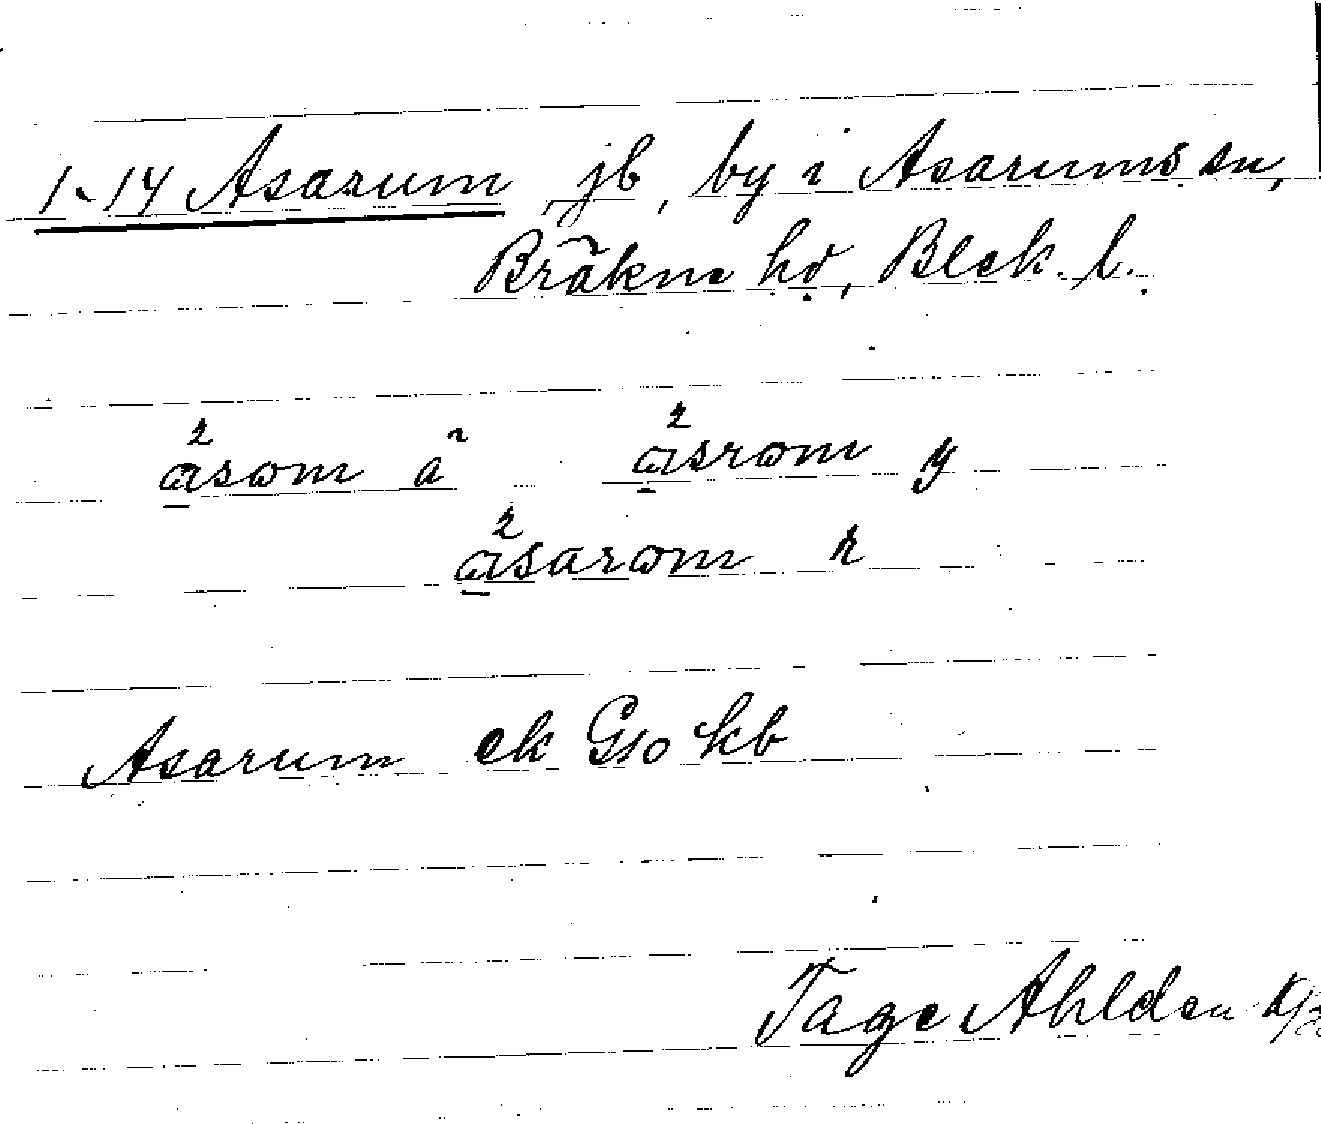 1-14 Asarum, jb, by i Asarums sn,
Bräkne hd, Blek. l.
asom a asrom y
asarom r
Asarum ek Gso kb
Tage Ahlden